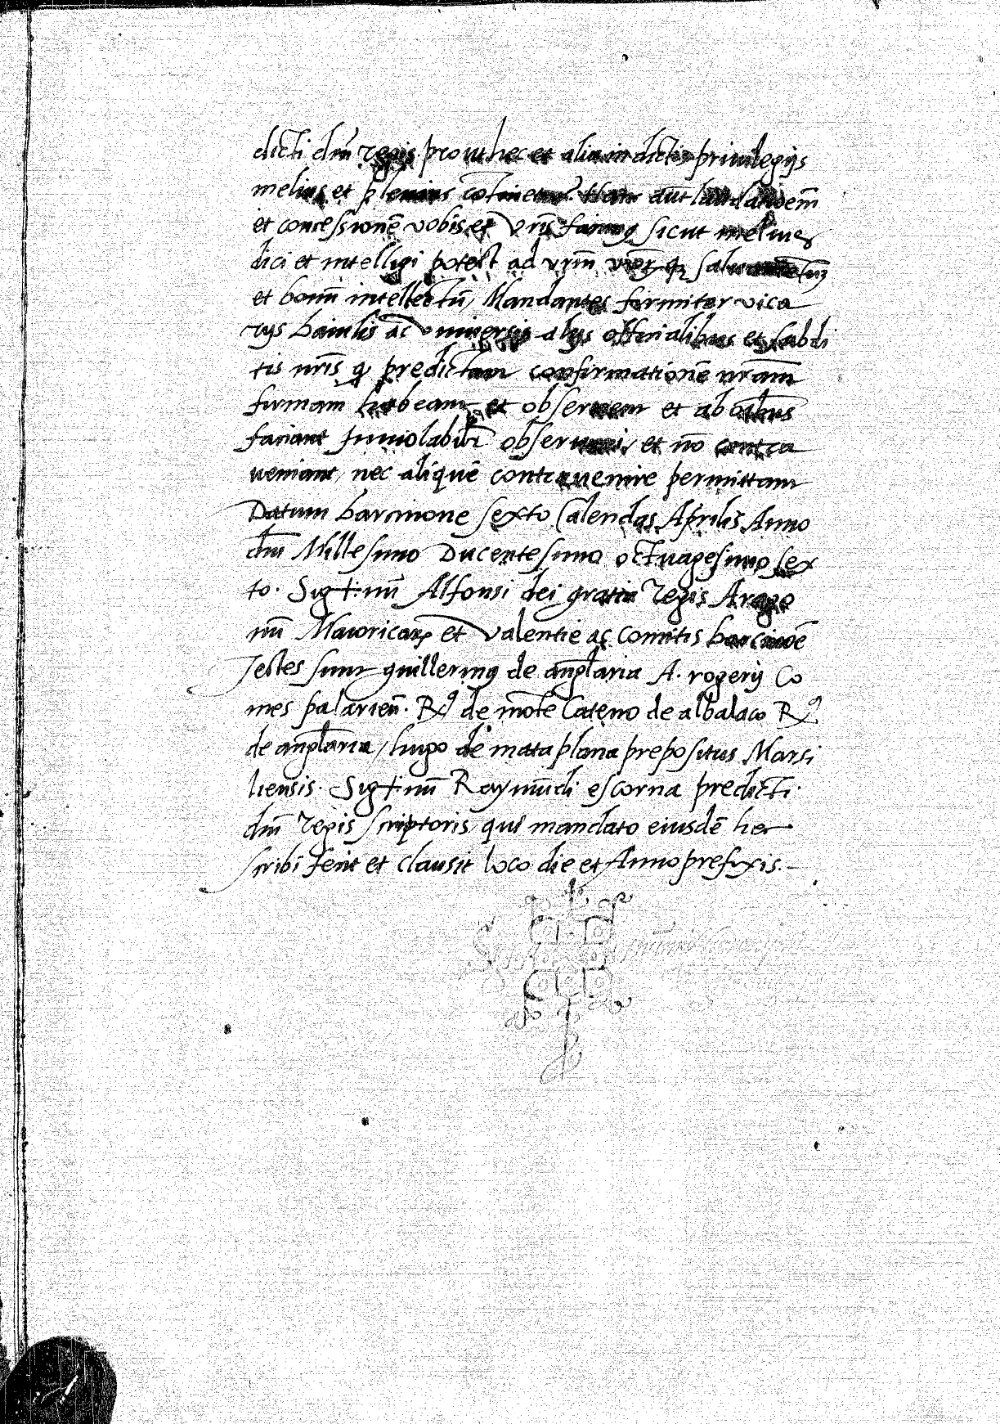 dicti dnī regis prout hec et alia in dictis privilegijs
melius et plenius cōtinetur Hanc aūt laudationem̄
et concessionē vobis et vr̄is facimus sicut melius
dici et intelligi potest ad vr̄m
et bonū intellectū, Mandantes firmiter vica
rijs baiulis ac universis alijs officialibus et subdi
tis nr̄is ꝙ predictam confirmationē nr̄am̄
firmam habeant et observent et ab oībus
faciant Inviolabilr̄ observari, et nō contra
veniant, nec aliquē contravenire permittant
Datum barcinone sexto Calendas Aprilis Anno
dnī Millesimo Ducentesimo octuagesimo sex
to. Sig+nū Alfonsi dei gratia regis Arago
nū Maioricarꝝ et Valentie ac Comitis barcinoē
Testes sunt guillermꝰ de anglaria A. rogerij Co
mes palarieñ. Rꝰ de mōte Cateno de albalaco Rꝰ
de anglaria, hugo de mataplana prepositus Marsi
liensis. Sig+nū Raymūdi escorna predicti
dnī regis scriptoris, qui mandato eiusdē hec
scribi fecit et clausit loco die et Anno prefixis.-